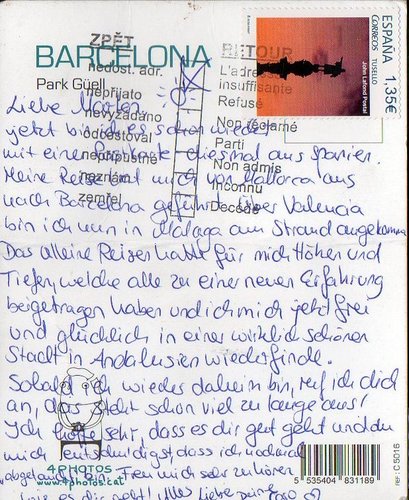 BARCELONA
Park Güell
ESPAÑA
CORREOS
TUSELLO
1,35€
John Lafond Postal
ZPĚT
nedost. adr.
nepřijato
nevyžádáno
odcestoval
nepřípustné
neznámý
zemřel
RETOUR
L'adresse
insuffisante
Refusé
Non réclamé
Parti
Non admis
Inconnu
Décédé
Liebe
jetzt bin ich es schon wieder
mit einer diesmal aus Spanien.
Meine Reise hat mich von Mallorca aus
nach Barcelona geführt. Über Valencia
bin ich nun in Malaga am Strand angekommen
Das alleine Reisen hatte für mich Höhen und
Tiefen, welche alle zu einer neuen Erfahrung
beigetragen haben und ich mich jetzt frei
und glücklich in einer wirklich schönen
Stadt in Andalusien wiederfinde.
Sobald ich wieder daheim bin, ruf ich dich
an, das steht schon viel zu lange aus!
Ich hoffe sehr, dass es dir gut geht und du
mich entschuldigst, dass ich nochmal
Freu mich sehr zu hören
wie es dir geht! Alles Liebe
4PHOTOS
www.4photos.cat
5 535404 831189